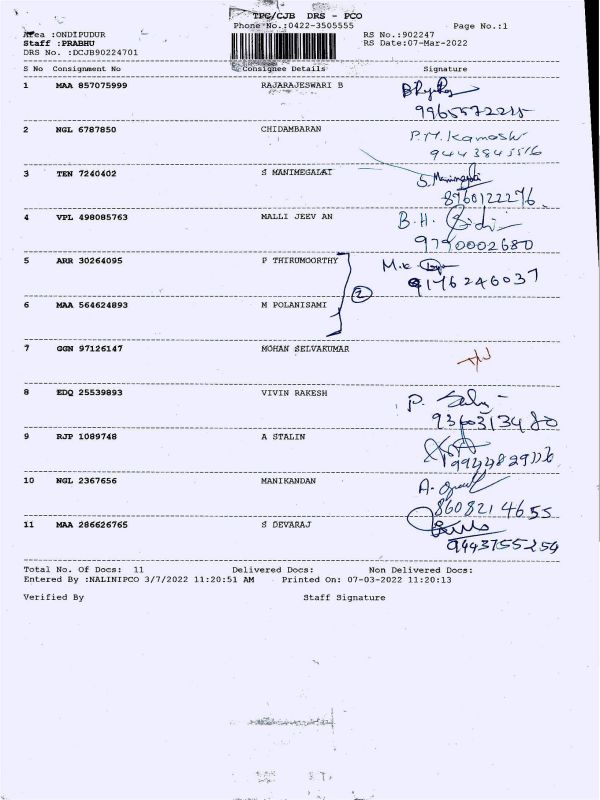 TPC/CJB DRS - PCO
Phone No.:0422-3505555
Page No.:1
Area :ONDIPUDUR
RS No.:902247
Staff :PRABHU
RS Date:07-Mar-2022
DRS No. :DCJB90224701
S No Consignment No Consignee Details Signature
1 MAA 857075999 RAJARAJESWARI B
9965572215
2 NGL 6787850 CHIDAMBARAN
9443845516
3 TEN 7240402 S MANIMEGALAI S. Manimegalai
8760122276
4 VPL 498085763 MALLI JEEV AN B.H.
9790002680
5 ARR 30264095 P THIRUMOORTHY M.K
9176246037
2
6 MAA 564624893 M POLANISAMI
7 GGN 97126147 MOHAN SELVAKUMAR
8 EDQ 25539893 VIVIN RAKESH P.
9360313480
9 RJP 1089748 A STALIN
10 NGL 2367656 MANIKANDAN A.
8608214655
11 MAA 286626765 S DEVARAJ
9443755254
Total No. Of Docs: 11 Delivered Docs: Non Delivered Docs:
Entered By :NALINIPCO 3/7/2022 11:20:51 AM Printed On: 07-03-2022 11:20:13
Verified By Staff Signature